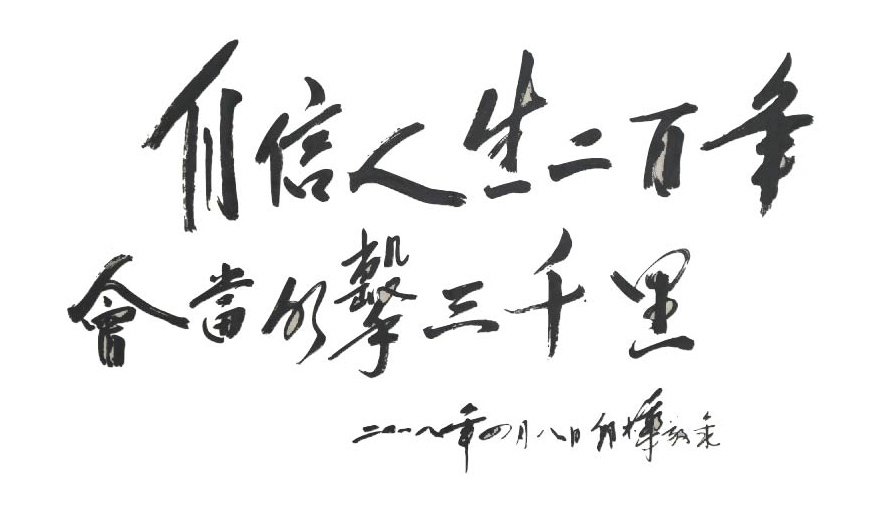 自信人生二百年
會當水擊三千里
二〇一八年四月八日